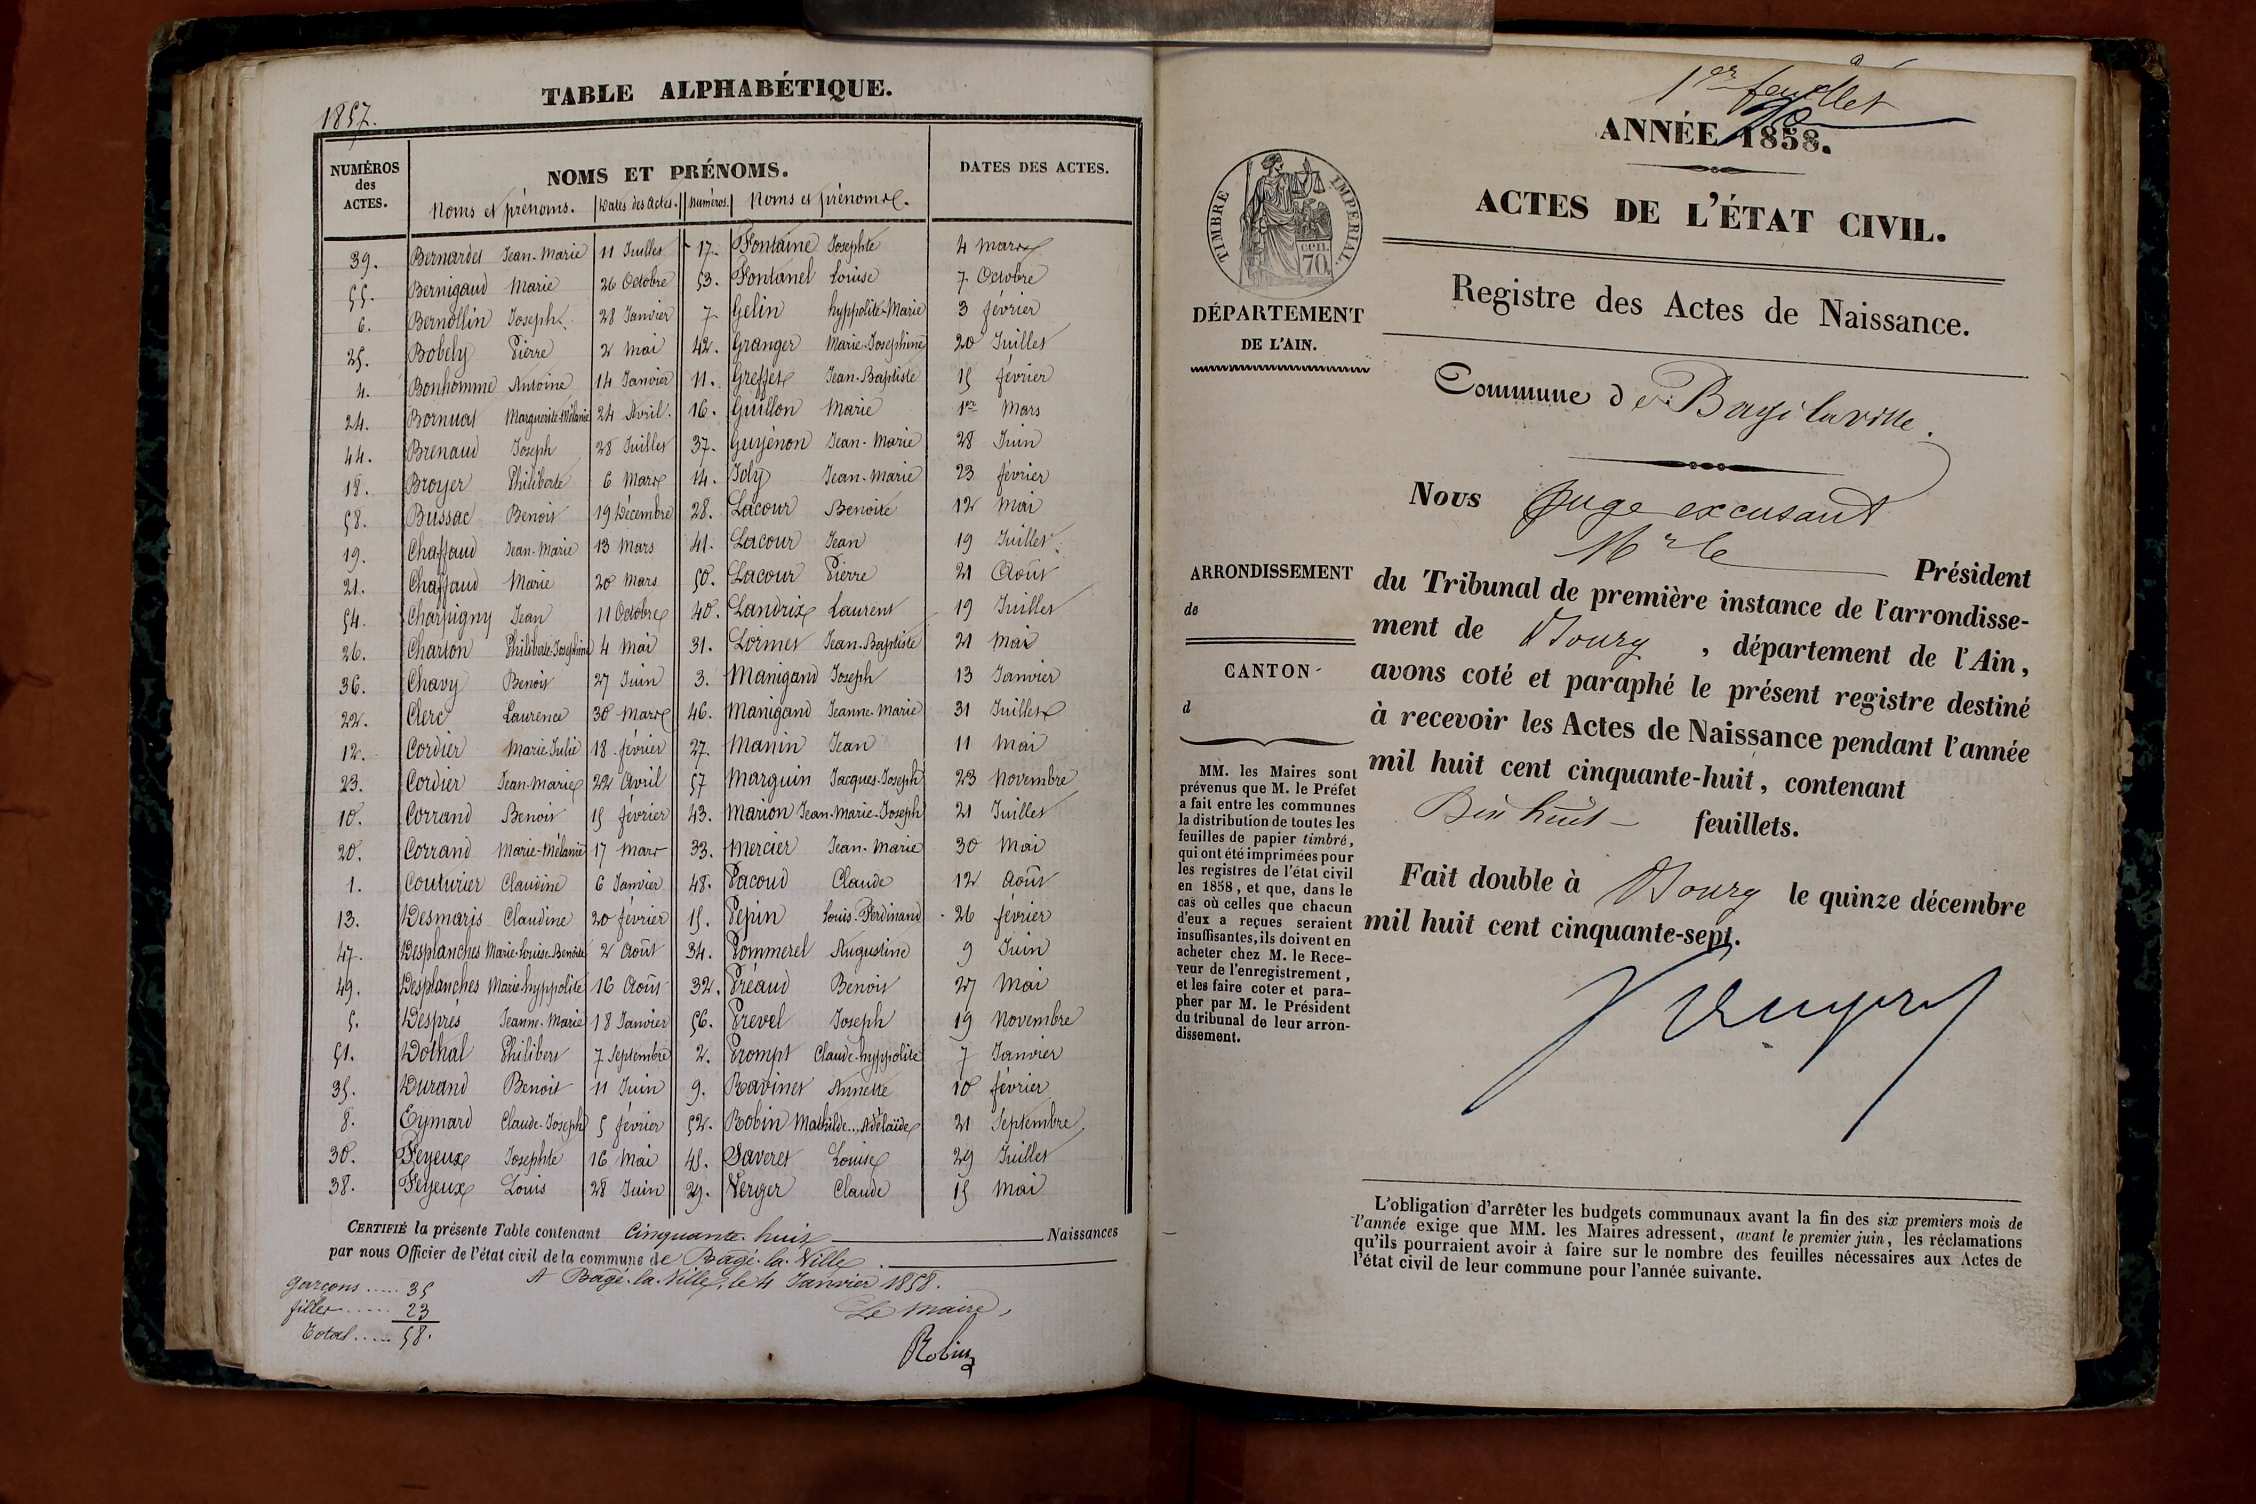 1857.
TABLE ALPHABÉTIQUE.
NUMÉROS des ACTES.
NOMS ET PRÉNOMS.
DATES DES ACTES.
Noms et prénoms. Dates des Actes. Numéros. Noms et prénoms.
39. Bernardet Jean-Marie 11 Juillet 17. Fontaine Josephte 4 mars
55. Bernigaud Marie 26 Octobre 53. Fontanel Louise 7 Octobre
6. Bernollin Joseph 28 Janvier 7 Gelin hyppolite-Marie 3 février
25. Bobely Pierre 2 mai 42. Granger Marie-Josephine 20 Juillet
4. Bonhomme Antoine 14 Janvier 11. Greffet Jean-Baptiste 15 février
24. Bornuat Marguerite-Mélanie 24 Avril 16. Guillon Marie 1er Mars
44. Brenaud Joseph 28 Juillet 37. Guyénon Jean-Marie 28 Juin
18. Broyer Philiberte 6 Mars 14. Joly Jean-Marie 23 février
58. Bussac Benoit 19 Décembre 28. Lacour Benoite 12 mai
19. Chaffaud Jean-Marie 13 Mars 41. Lacour Jean 19 Juillet
21. Chaffaud Marie 20 Mars 50. Lacour Pierre 21 Août
54. Charpigny Jean 11 Octobre 40. Landrix Laurent 19 Juillet
26. Charton Philiberte-Josephine 4 Mai 31. Loimet Jean-Baptiste 21 mai
36. Chavy Benoit 27 Juin 3. Manigand Joseph 13 Janvier
22. Clerc Laurence 30 Mars 46. Manigand Jeanne-Marie 31 Juillet
12. Cordier Marie-Julie 18 février 27. Manin Jean 11 mai
23. Cordier Jean-Marie 22 Avril 57 Marguin Jacques-Joseph 23 Novembre
10. Corrand Benoit 15 février 43. Marion Jean-Marie-Joseph 21 Juillet
20. Corrand Marie-Mélanie 17 Mars 33. Mercier Jean-Marie 30 Mai
1. Couturier Claudine 6 Janvier 48. Pacoud Claude 12 Août
13. Desmaris Claudine 20 février 15. Pepin Louis-Ferdinand 26 février
47. Desplanches Marie-Louise-Benoite 2 Août 34. Pommerel Augustine 9 Juin
49. Desplanches Marie-hyppolite 16 Août 32. Préaud Benoit 27 Mai
5. Després Jeanne-Marie 18 Janvier 56. Prevel Joseph 19 Novembre
51. Dothal Philibert 7 Septembre 2. Prompt Claude-hyppolite 7 Janvier
35. Durand Benoit 11 Juin 9. Ravinet Annette 10 février
8. Eymard Claude-Joseph 5 février 52. Robin Mathilde-Adélaïde 21 Septembre
30. Feyeux Josephte 16 Mai 45. Saveret Louise 29 Juillet
38. Feyeux Louis 28 Juin 29. Verger Claude 15 Mai
CERTIFIÉ la présente Table contenant Cinquante-huit Naissances
par nous Officier de l'état civil de la commune de Bagé-la-Ville
A Bagé-la-Ville, le 4 Janvier 1858.
Le Maire,
Robin
garçons ..... 35
filles ..... 23
Total ..... 58.
1er feuillet
ANNÉE 1858.
ACTES DE L'ÉTAT CIVIL.
TIMBRE IMPÉRIAL.
cen. 70
Registre des Actes de Naissance.
DÉPARTEMENT
DE L'AIN.
Commune de Bagé la ville.
Nous Juge excusant
Mr le Président
du Tribunal de première instance de l'arrondisse-
ment de Bourg, département de l'Ain,
avons coté et paraphé le présent registre destiné
à recevoir les Actes de Naissance pendant l'année
mil huit cent cinquante-huit, contenant
Dix huit feuillets.
Fait double à Bourg le quinze décembre
mil huit cent cinquante-sept.
ARRONDISSEMENT
de
CANTON
d
MM. les Maires sont
prévenus que M. le Préfet
a fait entre les communes
la distribution de toutes les
feuilles de papier timbré,
qui ont été imprimées pour
les registres de l'état civil
en 1858, et que, dans le
cas où celles que chacun
d'eux a reçues seraient
insuffisantes, ils doivent en
acheter chez M. le Rece-
veur de l'enregistrement,
et les faire coter et para-
pher par M. le Président
du tribunal de leur arron-
dissement.
L'obligation d'arrêter les budgets communaux avant la fin des six premiers mois de
l'année exige que MM. les Maires adressent, avant le premier juin, les réclamations
qu'ils pourraient avoir à faire sur le nombre des feuilles nécessaires aux Actes de
l'état civil de leur commune pour l'année suivante.